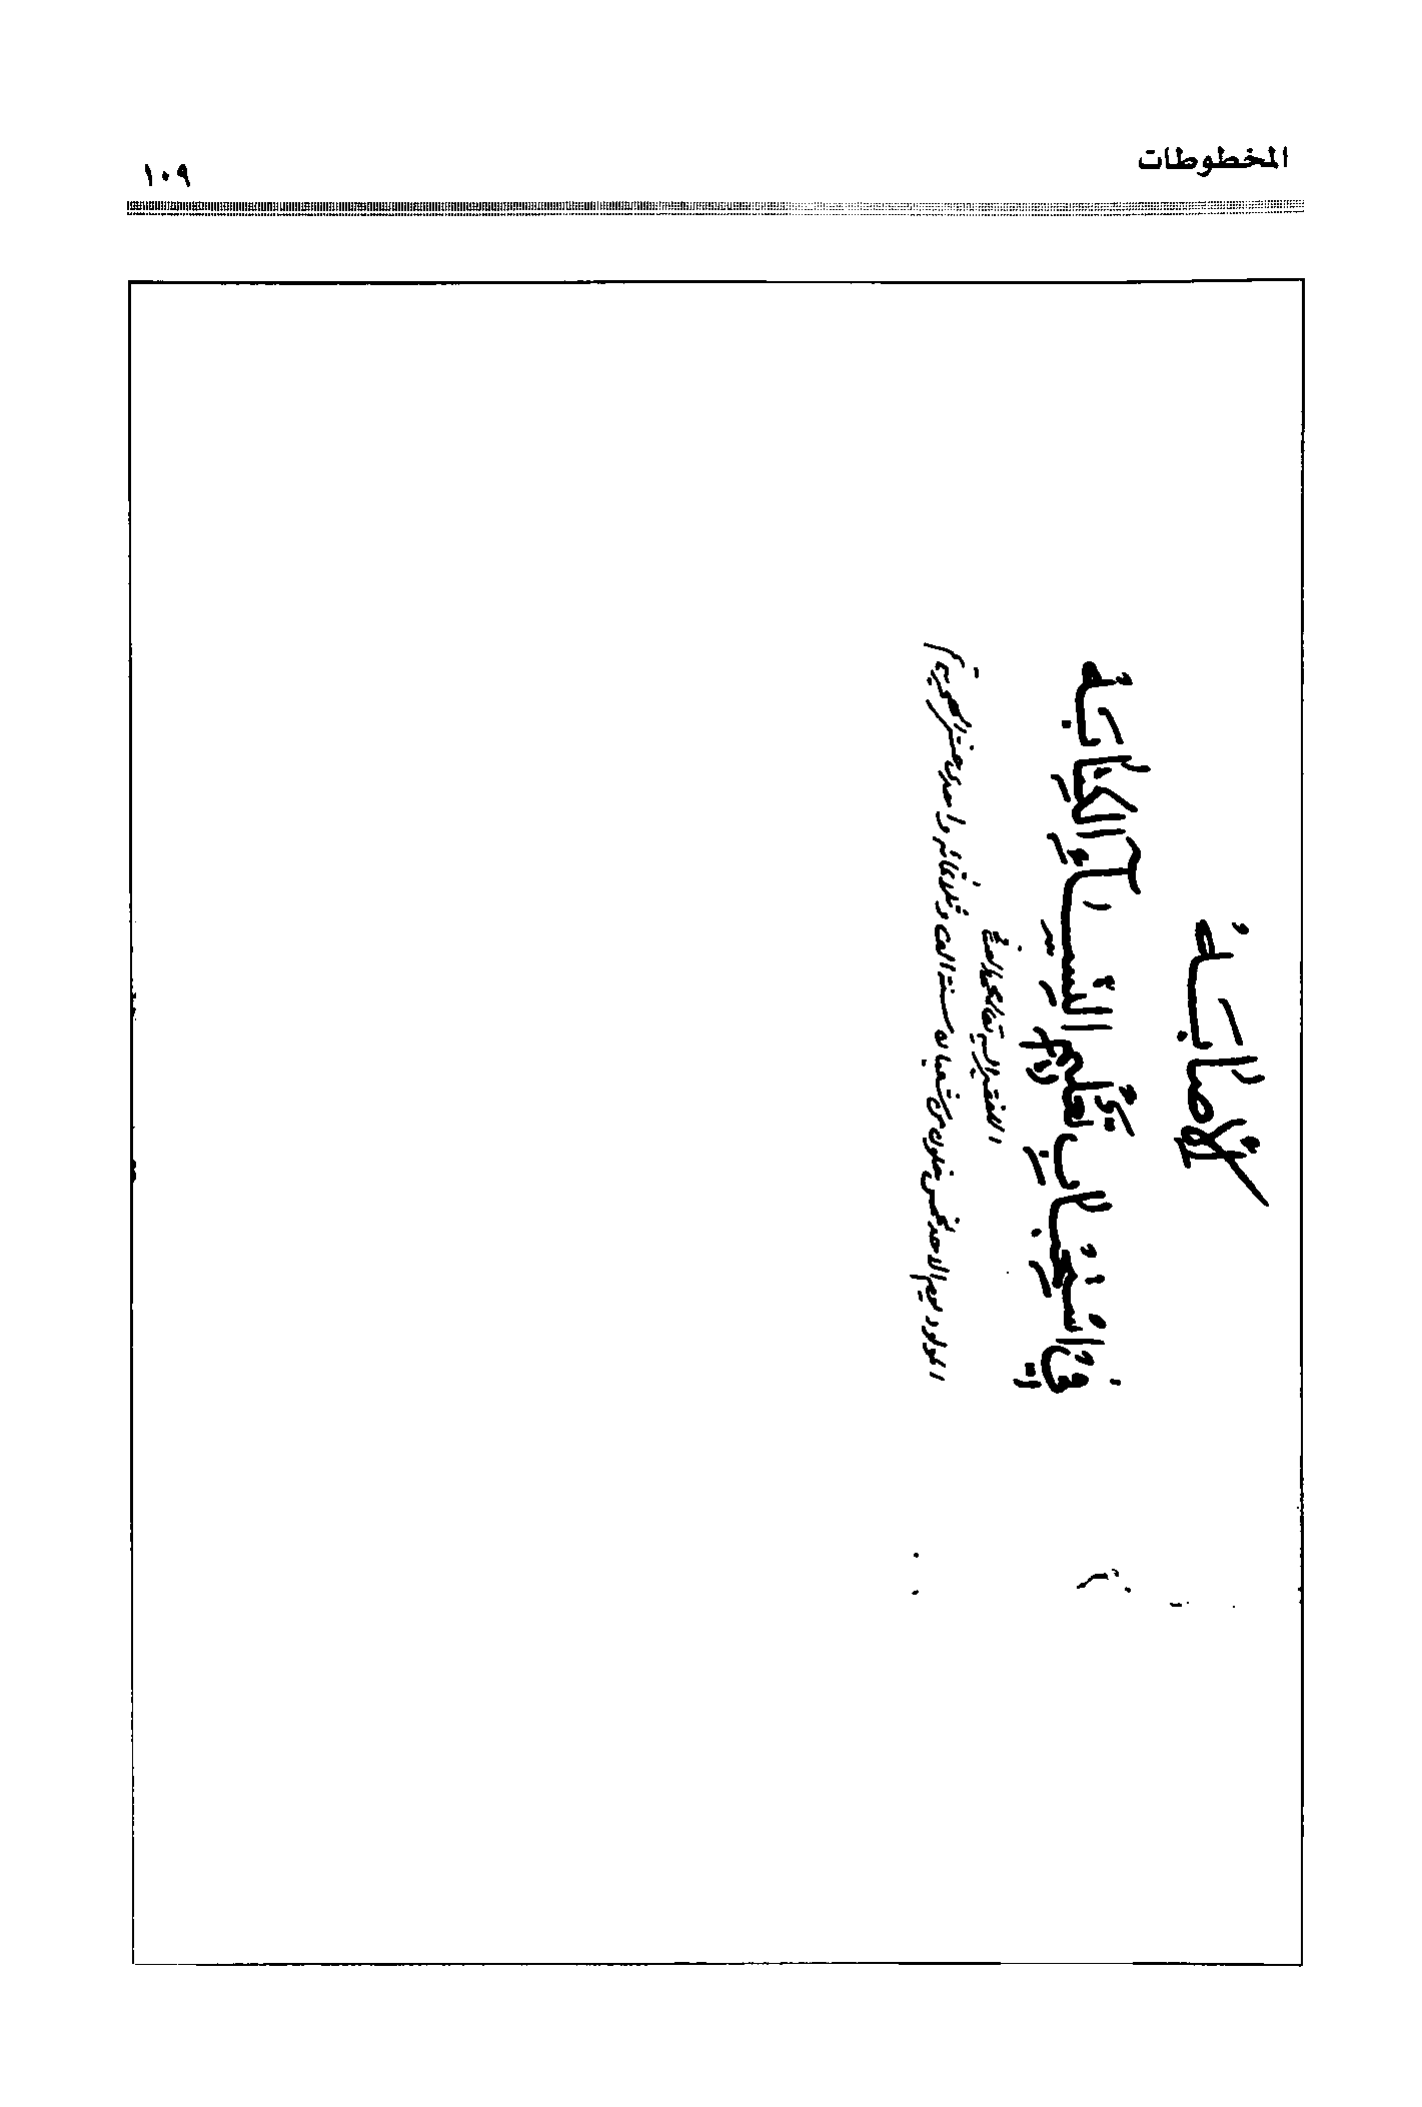 المخطوطات
١٠٩
الإصَابَـة
في اسْتِحْبَابِ تَعْلِيمِ النِّسَاءِ الكِتَابَةِ
الفقير إليه تعالى
المولود يوم الأحد لخمس خلون من شعبان سنة الف وثلاثمائة واحدى عشر